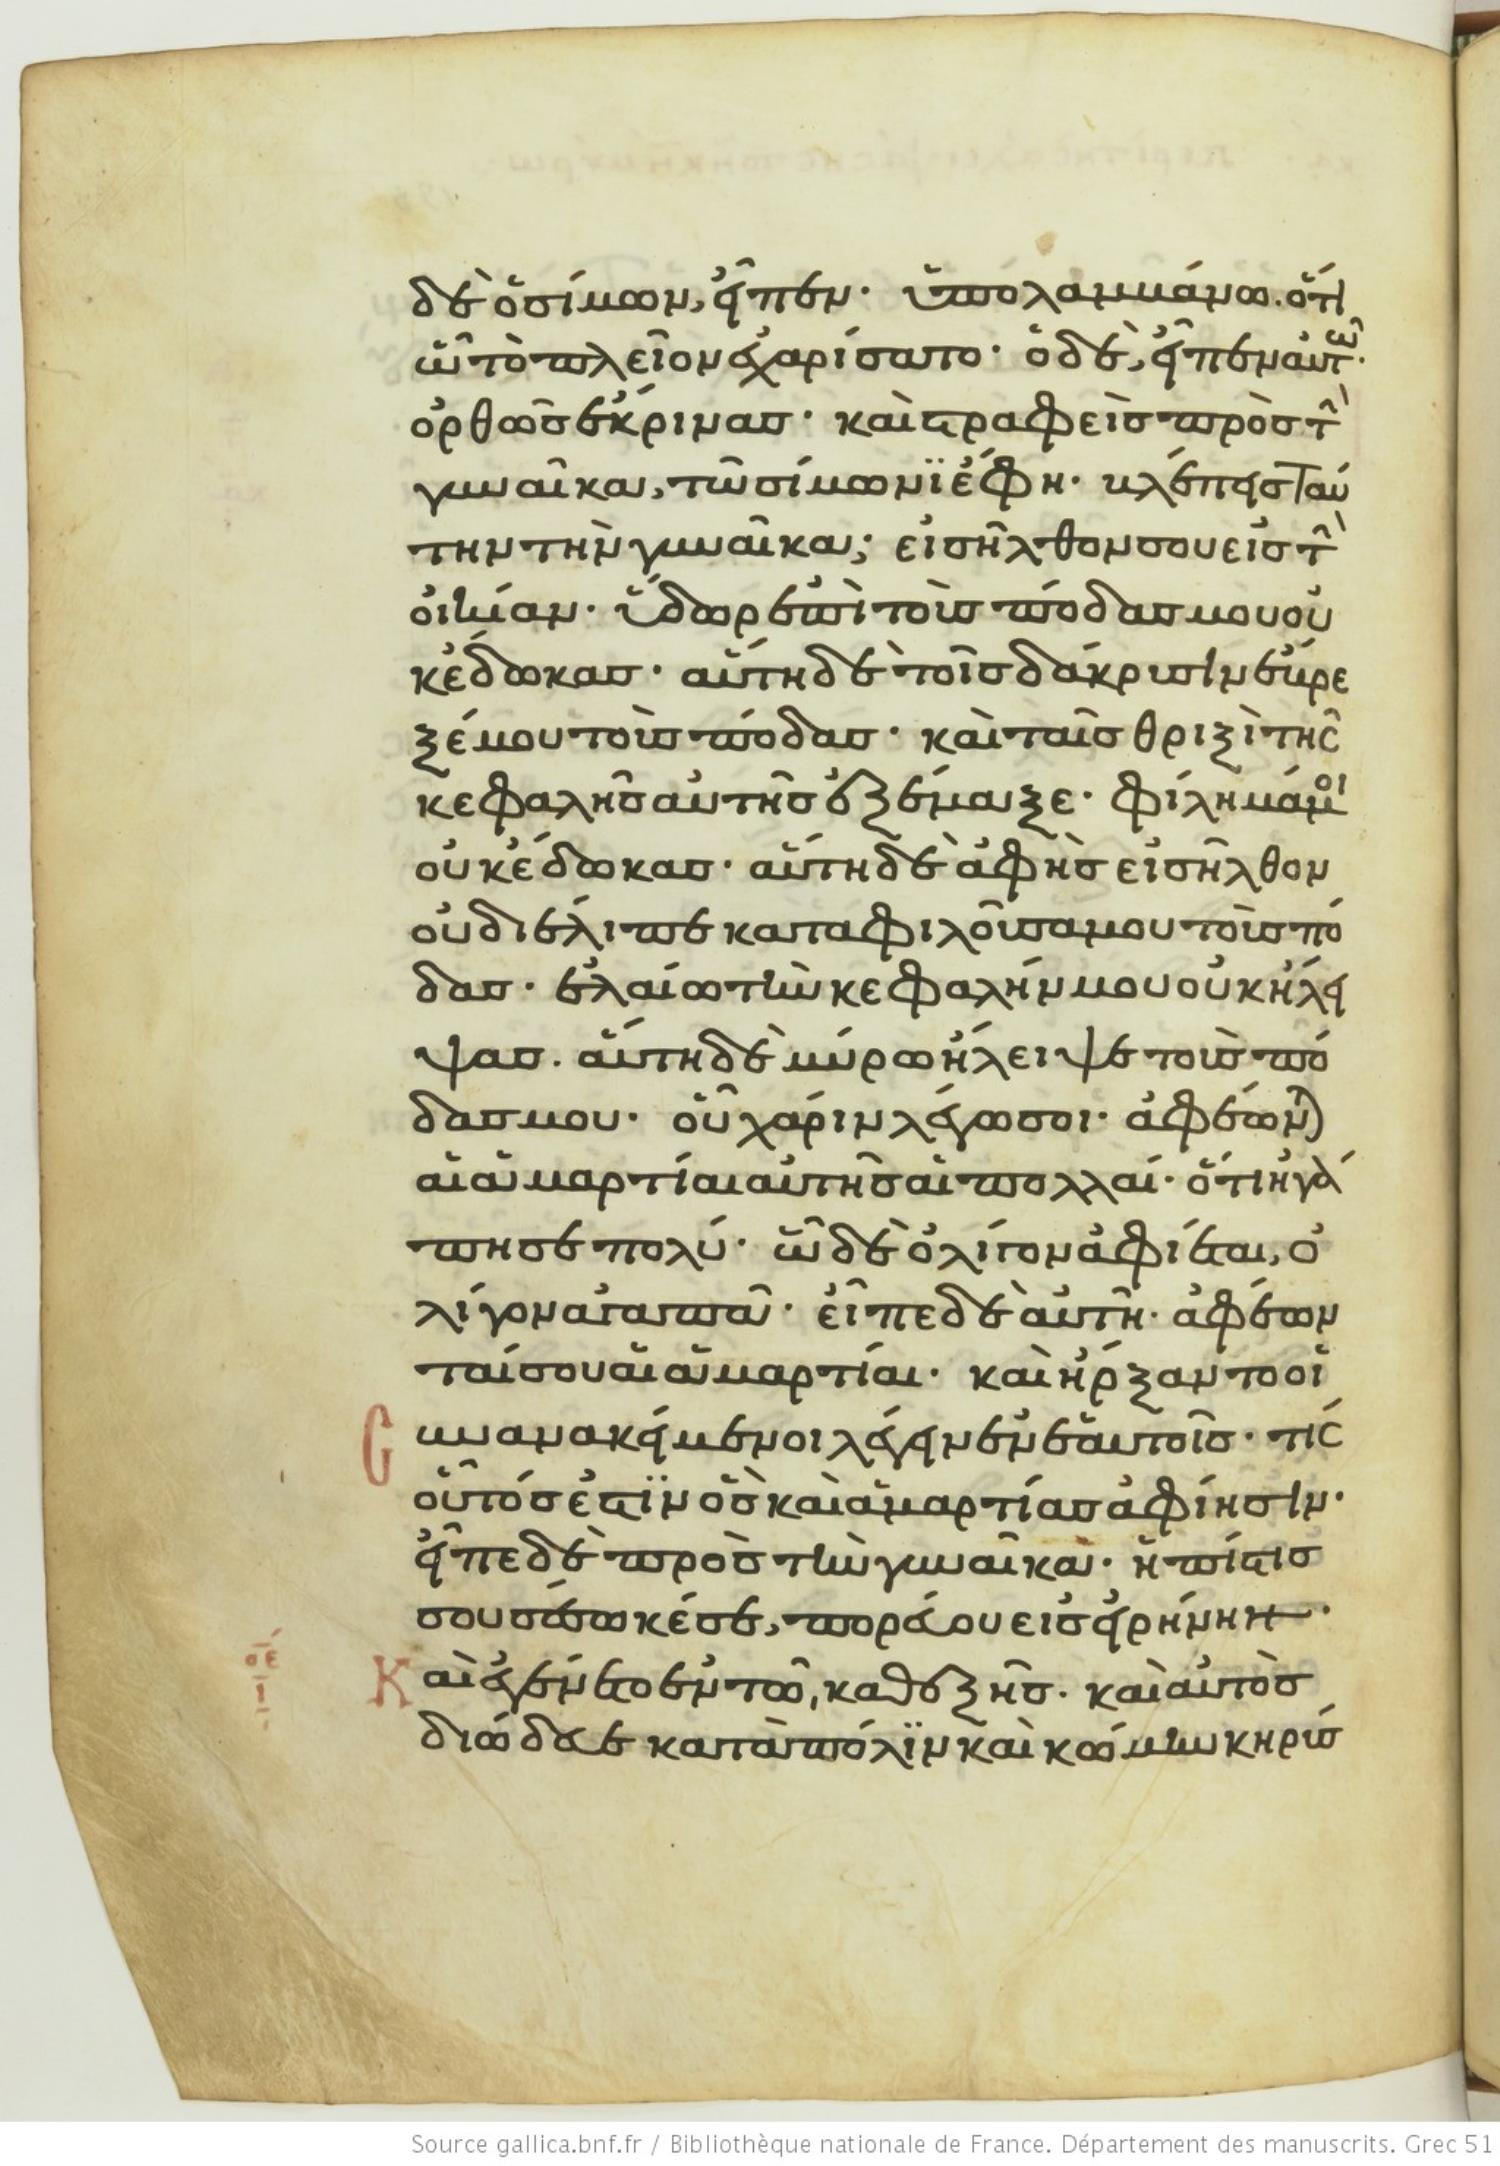 δὲ ὁ σίμων, εἶπεν· ὑπολαμμάνω. ὅτι
ὧ τὸ πλεῖον ἐχαρίσατο· ὁ δὲ, εἶπεν αυτῶ·
ὀρθῶς ἐκρινας· καὶ στραφεὶς πρὸς τὴ
γυναῖκα, τῶ σίμωνϊ ἔφη· βλέπεις ταύ
την τὴν γυναῖκα; εἰσῆλθον σου εἰς τὴ
οἰκίαν· ὕδωρ ἐπὶ τοὺς πόδας μου οὐ
κ ἔδωκας· αὕτη δὲ τοῖς δάκρυσιν ἔβρε
ξέ μου τοὺς πόδας· καὶ ταῖς θριξὶ τῆς
κεφαλῆς αὐτῆς ἐξέμαξε· φίλημά μοι
οὐκ ἔδωκας· αὕτη δὲ ἀφ ἧς εἰσῆλθον
οὐ διέλιπε καταφιλοῦσα μου τοὺς πό
δας· ἐλαίω τὴν κεφαλήν μου οὐκ ἤλει
ψας. αὕτη δὲ μύρω ἤλειψε τοὺς πό
δας μου· οὗ χάριν λέγω σοι· ἀφέων)
αἱ ἁμαρτίαι αὐτῆς αἱ πολλαί· ὅτι ἠγά
πησε πολύ· ὧ δὲ ὀλίγον ἀφίεται, ὀ
λίγον ἀγαπᾶ· εἶπε δὲ αὐτῆ· ἀφέων
ταί σου αἱ ἁμαρτίαι· καὶ ἤρξαντο οἱ
Cυνανακείμενοι λέγειν ἐν ἑαυτοῖς· τίς
οὗτός ἐστϊν ὃς καὶ ἁμαρτίας ἀφίησιν·
εἶπε δὲ πρὸς τὴν γυναῖκα· ἡ πίστις
σου σέσωκέ σε, πορεύου εἰς εἰρήνην·
σε
ι
Καὶ ἐγένετο ἐν τῶ, καθεξῆς· καὶ αὐτὸς
διώδευε κατὰ πόλϊν καὶ κώμην κηρύσ
Source gallica.bnf.fr / Bibliothèque nationale de France. Département des manuscrits. Grec 51